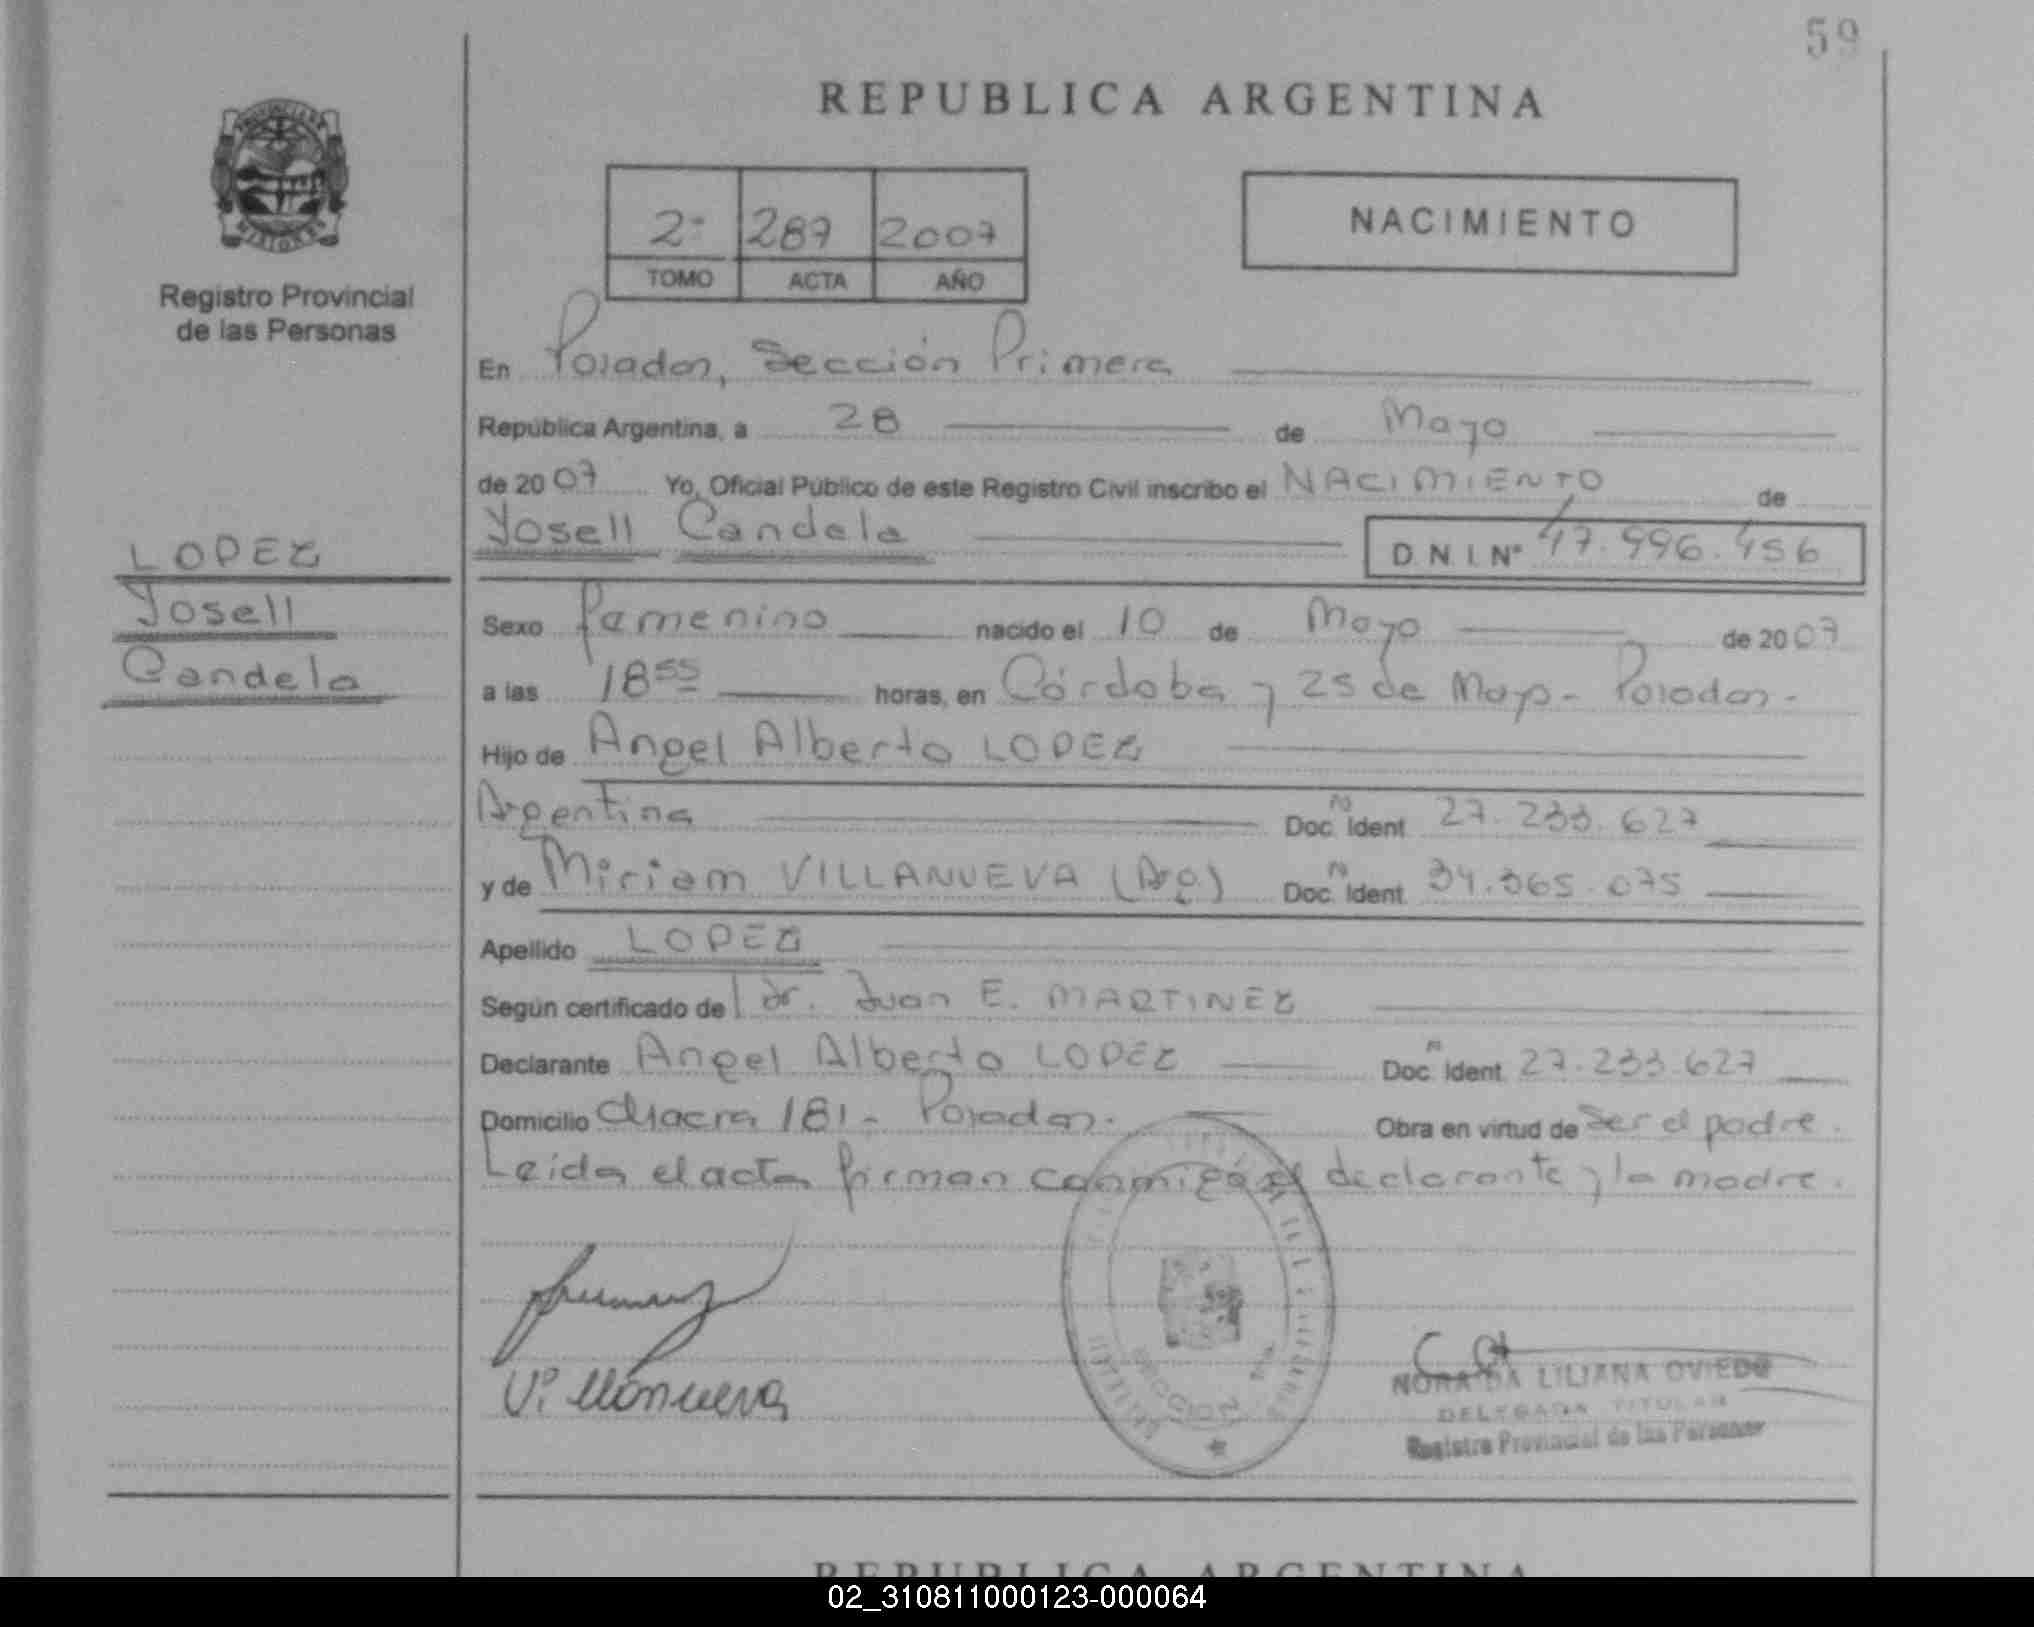 59
REPUBLICA ARGENTINA
2º 287 2007
TOMO ACTA AÑO
NACIMIENTO
Registro Provincial
de las Personas
En Posadas, Sección Primera
República Argentina, a 28 de Mayo
de 2007 Yo, Oficial Público de este Registro Civil inscribo el NACIMIENTO de
Yosell Candela D.N.I. Nº 47.996.456
LOPEZ
Yosell
Candela
Sexo femenino nacido el 10 de Mayo de 2007
a las 18 55 horas, en Córdoba y 25 de Mayo - Posadas -
Hijo de Angel Alberto LOPEZ
Argentina Doc. Nº Ident. 27.233.627
y de Miriam VILLANUEVA (Arg.) Doc. Nº Ident. 34.365.075
Apellido LOPEZ
Según certificado de Dr. Juan E. MARTINEZ
Declarante Angel Alberto LOPEZ Doc. Nº Ident. 27.233.627
Domicilio Chacra 181 - Posadas. Obra en virtud de Ser el padre.
Leida el acta firman conmigo el declarante y la madre.
Villanueva
NORA DA LILIANA OVIEDO
DELEGADA TITULAR
Registro Provincial de las Personas
SECCION
REPUBLICA ARGENTINA
02_310811000123-000064